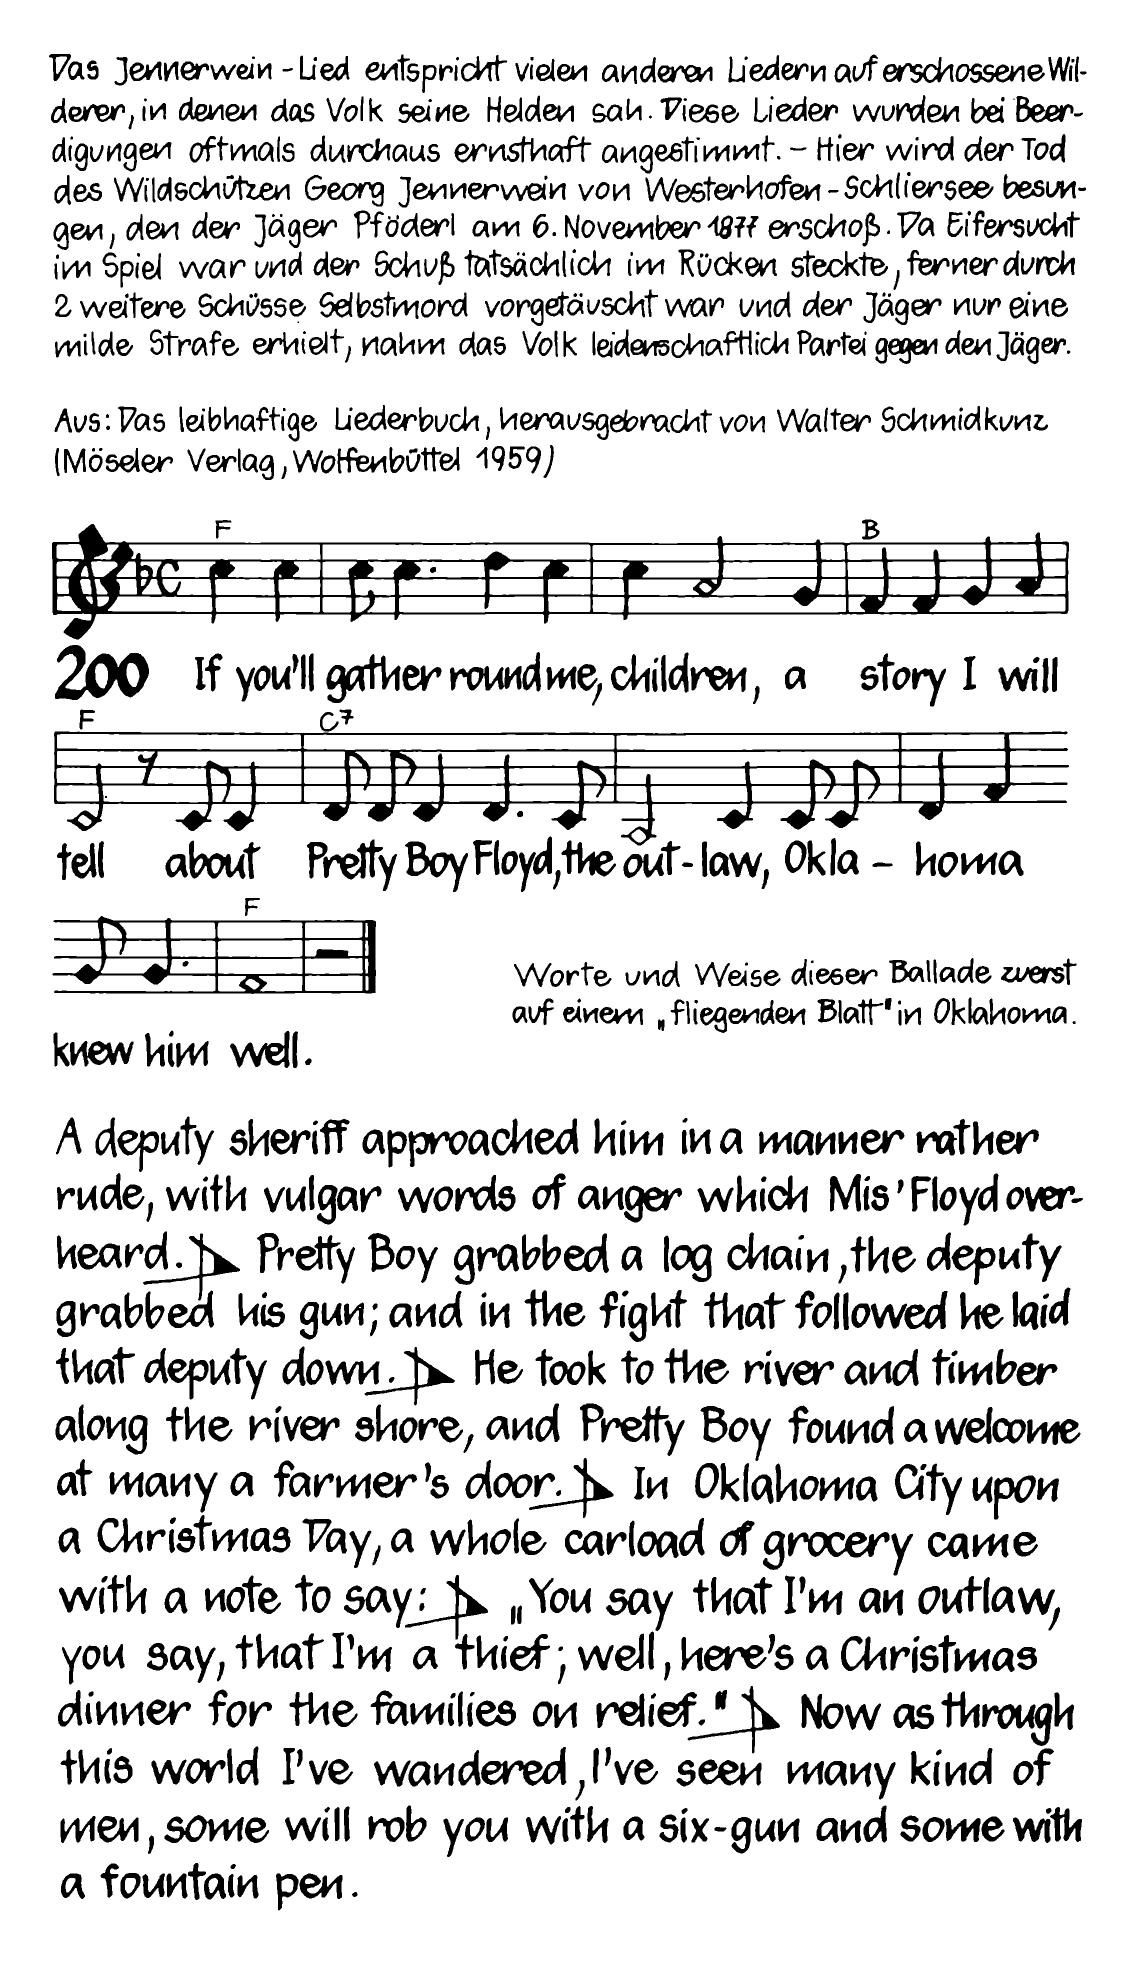 Das Jennerwein-Lied entspricht vielen anderen Liedern auf erschossene Wil-
derer, in denen das Volk seine Helden sah. Diese Lieder wurden bei Beer-
digungen oftmals durchaus ernsthaft angestimmt. – Hier wird der Tod
des Wildschützen Georg Jennerwein von Westerhofen-Schliersee besun-
gen, den der Jäger Pföderl am 6. November 1877 erschoß. Da Eifersucht
im Spiel war und der Schuß tatsächlich im Rücken steckte, ferner durch
2 weitere Schüsse Selbstmord vorgetäuscht war und der Jäger nur eine
milde Strafe erhielt, nahm das Volk leidenschaftlich Partei gegen den Jäger.
Aus: Das leibhaftige Liederbuch, herausgebracht von Walter Schmidkunz
(Möseler Verlag, Wolfenbüttel 1959)
F B
200 If you'll gather round me, children, a story I will
F C7
tell about Pretty Boy Floyd, the out-law, Okla – homa
F
Worte und Weise dieser Ballade zuerst
auf einem „fliegenden Blatt" in Oklahoma.
knew him well.
A deputy sheriff approached him in a manner rather
rude, with vulgar words of anger which Mis' Floyd over-
heard. Pretty Boy grabbed a log chain, the deputy
grabbed his gun; and in the fight that followed he laid
that deputy down. He took to the river and timber
along the river shore, and Pretty Boy found a welcome
at many a farmer's door. In Oklahoma City upon
a Christmas Day, a whole carload of grocery came
with a note to say: „You say that I'm an outlaw,
you say, that I'm a thief; well, here's a Christmas
dinner for the families on relief." Now as through
this world I've wandered, I've seen many kind of
men, some will rob you with a six-gun and some with
a fountain pen.